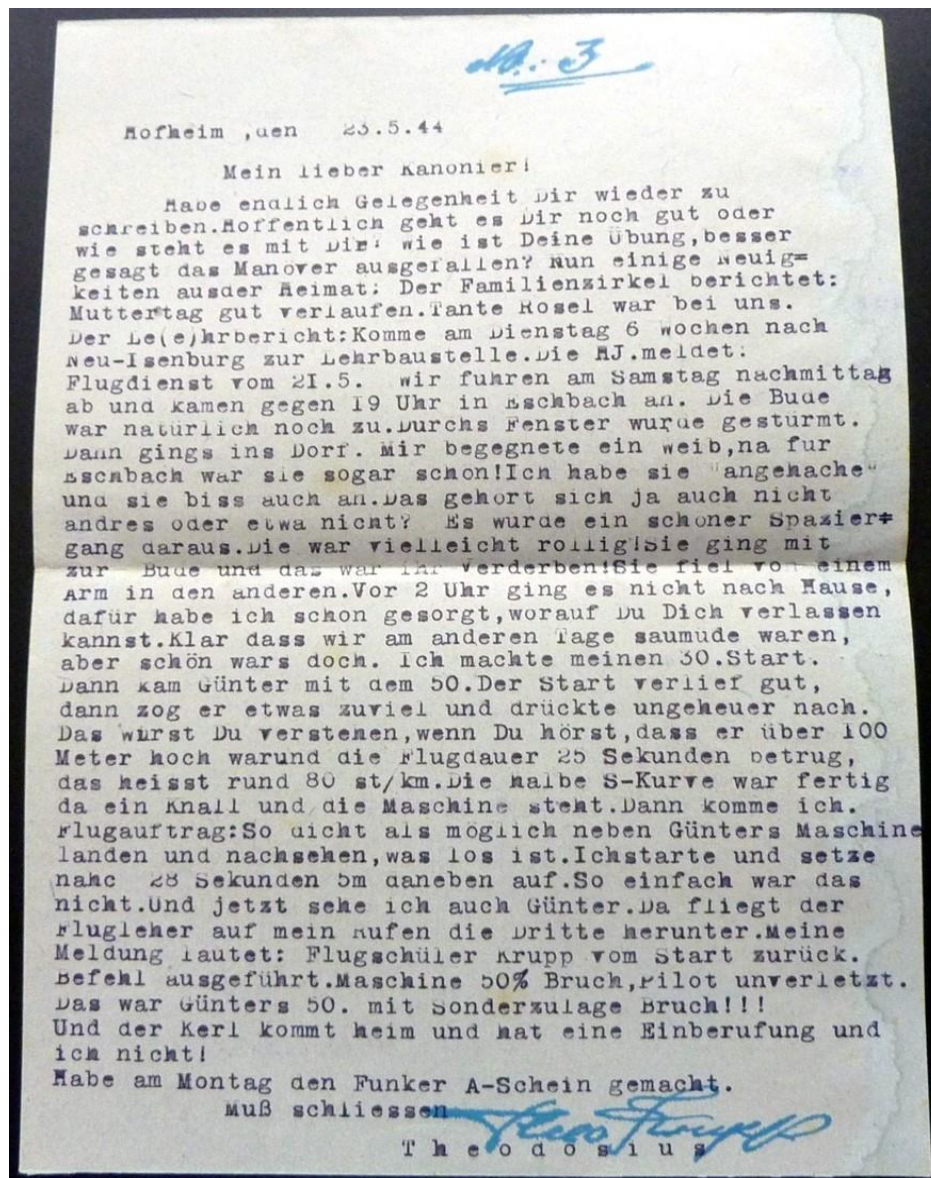 No.: 3
Hofheim ,den 23.5.44
Mein lieber Kanonier!
Habe endlich Gelegenheit Dir wieder zu
schreiben.Hoffentlich geht es Dir noch gut oder
wie steht es mit Dir? wie ist Deine Übung,besser
gesagt das Manöver ausgefallen? Nun einige Neuig=
keiten ausder Heimat: Der Familienzirkel berichtet:
Muttertag gut verlaufen.Tante Rosel war bei uns.
Der Le(e)hrbericht:Komme am Dienstag 6 Wochen nach
Neu-Isenburg zur Lehrbaustelle.Die HJ.meldet:
Flugdienst vom 2I.5. Wir fuhren am Samstag nachmittag
ab und kamen gegen I9 Uhr in Eschbach an. Die Bude
war natürlich noch zu.Durchs Fenster wurde gestürmt.
Dann gings ins Dorf. Mir begegnete ein Weib,na für
Eschbach war sie sogar schön!Ich habe sie "angehache"
und sie biss auch an.Das gehört sich ja auch nicht
andres oder etwa nicht? Es wurde ein schöner Spazier=
gang daraus.Die war vielleicht rollig!Sie ging mit
zur Bude und das war ihr Verderben!Sie fiel von einem
Arm in den anderen.Vor 2 Uhr ging es nicht nach Hause,
dafür habe ich schon gesorgt,worauf Du Dich verlassen
kannst.Klar dass wir am anderen Tage saumüde waren,
aber schön wars doch. Ich machte meinen 30.Start.
Dann kam Günter mit dem 50.Der Start verlief gut,
dann zog er etwas zuviel und drückte ungeheuer nach.
Das wirst Du verstehen,wenn Du hörst,dass er über I00
Meter hoch warund die Flugdauer 25 Sekunden betrug,
das heisst rund 80 st/km.Die halbe S-Kurve war fertig
da ein Knall und die Maschine steht.Dann komme ich.
Flugauftrag:So dicht als möglich neben Günters Maschine
landen und nachsehen,was los ist.Ichstarte und setze
nahc 28 Sekunden 5m daneben auf.So einfach war das
nicht.Und jetzt sehe ich auch Günter.Da fliegt der
Flugleher auf mein Rufen die Dritte herunter.Meine
Meldung lautet: Flugschüler Krupp vom Start zurück.
Befehl ausgeführt.Maschine 50% Bruch,Pilot unverletzt.
Das war Günters 50. mit Sonderzulage Bruch!!!
Und der Kerl kommt heim und hat eine Einberufung und
ich nicht!
Habe am Montag den Funker A-Schein gemacht.
Muß schliessen
Theo Krupp
Theodosius